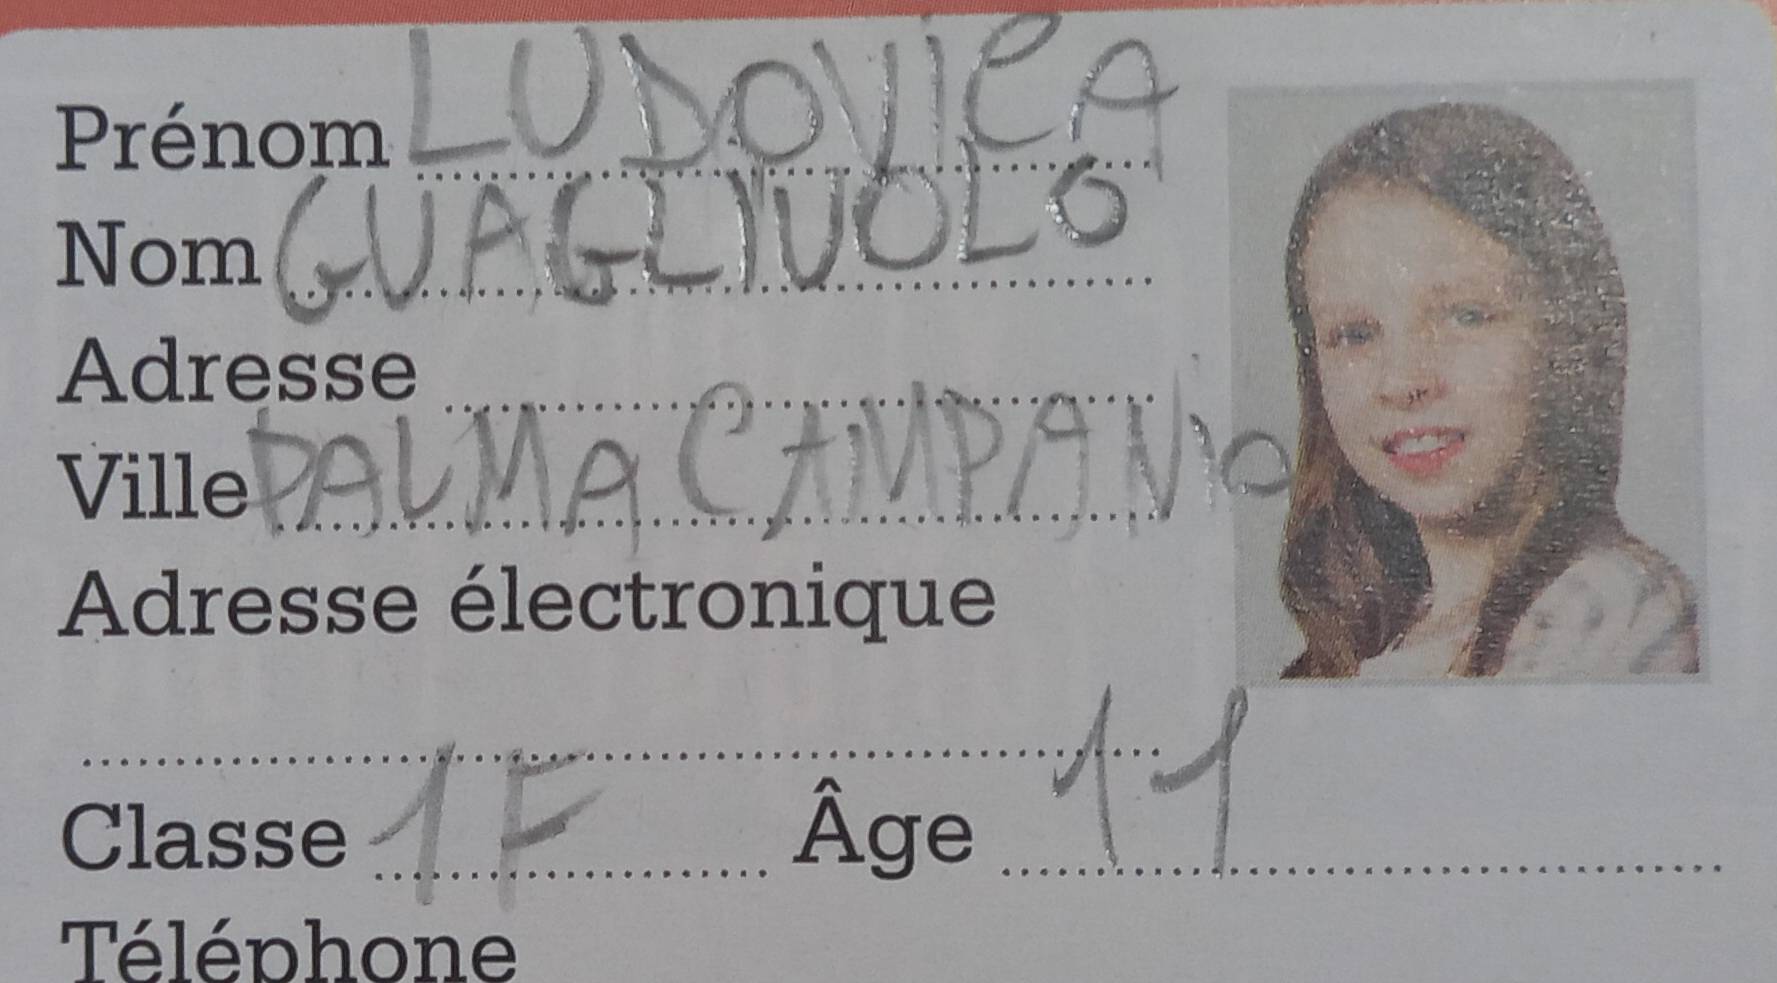 Prénom LUDOVICA
Nom GUAGLIUOLO
Adresse
Ville PALMA CAMPANIA
Adresse électronique
Classe 1F Âge 11
Téléphone